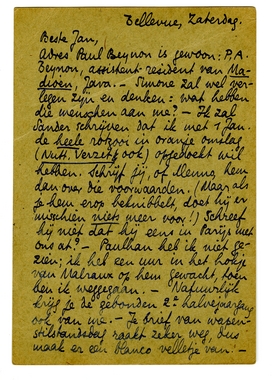 Bellevue, Zaterdag.
Beste Jan,
Adres Paul Beynon is gewoon: P.A.
Beynon, assistent-resident van Ma-
dioen, Java. — Simone zal wel ver-
legen zijn en denken: wat hebben
die menschen aan me? — Ik zal
Sander schrijven dat ik met 1 Jan.
de heele rotzooi in oranje omslag
(Nutt. Verzet ook) opgedoekt wil
hebben. Schrijf jij, of Menno, hem
dan over die voorwaarden. (Maar als
je hem erop beknibbelt, doet hij er
misschien niets meer voor!) Schreef
hij niet dat hij eens in Parijs met
ons at? — Paulhan heb ik niet ge-
zien; ik heb een uur in het hokje
van Malraux op hem gewacht, toen
ben ik weggegaan. — Natuurlijk
krijg je de gebonden 2e halvejaargang
ook van me. — Je brief van wapen-
stilstandsdag raakt zeker weg, dus
maak er een blanco velletje van! —